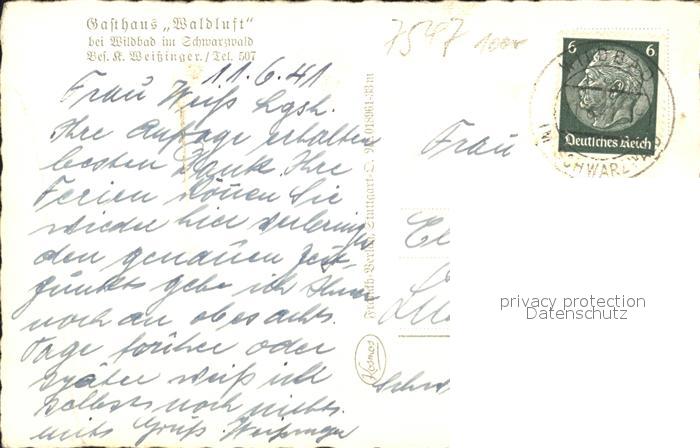 Gasthaus „Waldluft"
bei Wildbad im Schwarzwald
Bes. K. Weißinger. / Tel. 507
11.6.41
Frau Weiß
Ihre Anfage erhalten
besten Dank. Ihre
Ferien können Sie
wieder hier verbringen
den genauen Zeit-
punkts gebe ich Ihnen
noch an ob es achts
Tage früher oder
später weiß ich
selbst noch nichts.
mits Gruß. Weißinger
Kosmos
7547
Frau
El
Schw
6 6
Deutsches Reich
WILDBAD
IM SCHWARZWALD
privacy protection
Datenschutz